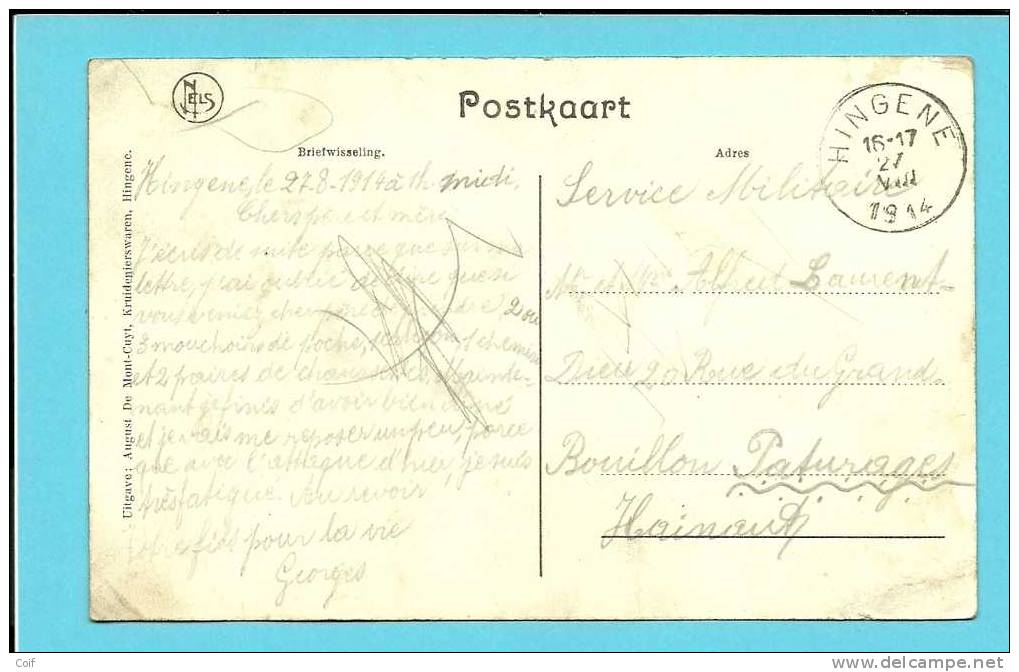 NELS
Postkaart
Briefwisseling.
Adres
HINGENE
16-17
27
VIII
1914
Uitgave: August De Mont-Cuyt, Kruidenierswaren, Hingene.
Hingene, le 27-8-1914 à 1h midi.
Chers père et mère
J'écris de suite parce que sur ma
lettre, j'ai oublié de dire que si
vous veniez 2 ou
3 mouchoirs de poche, 1 caleçon, 1 chemise
et 2 paires de chaussettes. Mainte-
nant je finis d'avoir bien diné
et je vais me reposer un peu, parce
que avec l'attaque d'hier, je suis
très fatigué. Au revoir
votre fils pour la vie
Georges
Service Militaire
Mr et Mme Alfred Laurent-
Dieu 20 Rue du Grand
Bouillon Paturages
Hainaut
Coif
www.delcampe.net